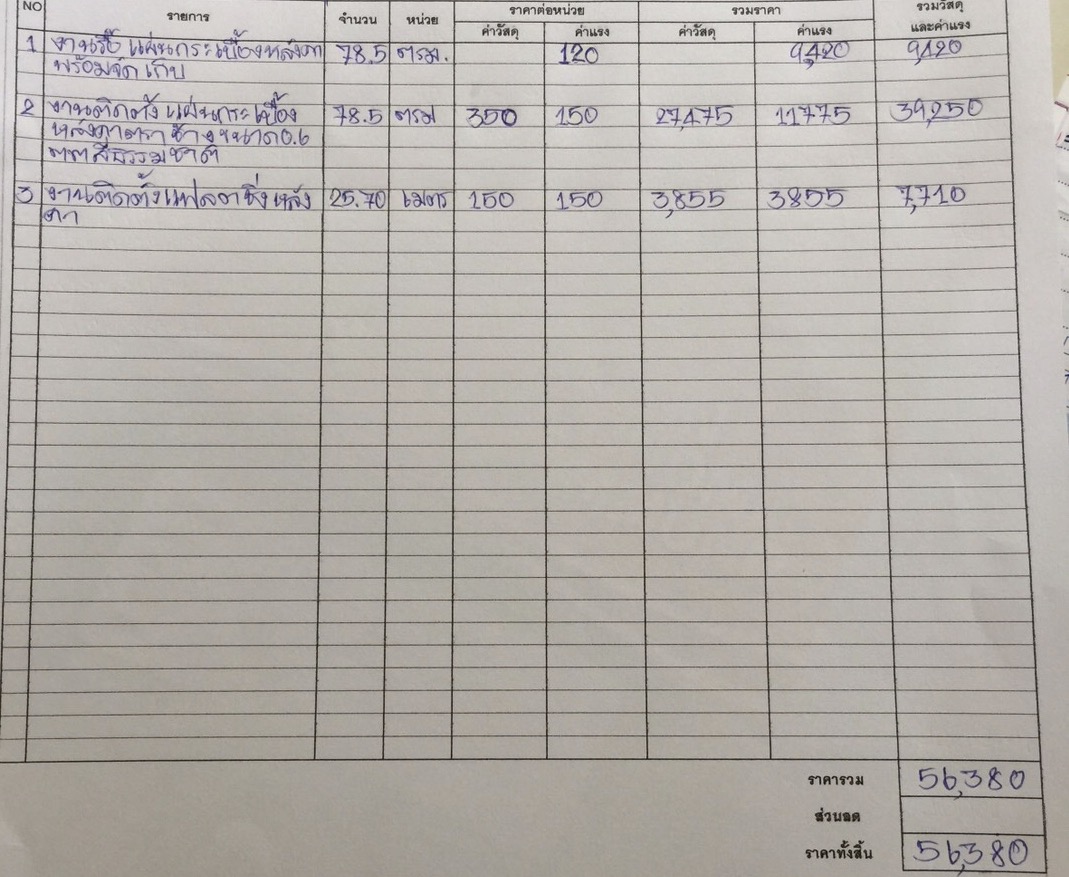 NO รายการ จำนวน หน่วย ราคาต่อหน่วย รวมราคา รวมวัสดุ
ค่าวัสดุ ค่าแรง ค่าวัสดุ ค่าแรง และค่าแรง
1 งานรื้อ แผ่นกระเบื้องหลังคา 78.5 ตรม. 120 9,420 9,420
พร้อมจัดเก็บ
2 งานติดตั้งแผ่นกระเบื้อง 78.5 ตรม 350 150 27,475 11775 39,250
หลังคาตราช้างขนาด0.6
ตตสีธรรมชาติ
3 งานติดตั้งแฟลตชิ่งหลัง 25.70 เมตร 150 150 3,855 3855 7,710
คา
ราคารวม 56,380
ส่วนลด
ราคาทั้งสิ้น 56,380